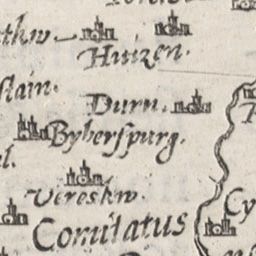 thw.
Huizen.
slain.
Durn.
Byberspurg.
l.
Vereskw.
Cy
Comitatus